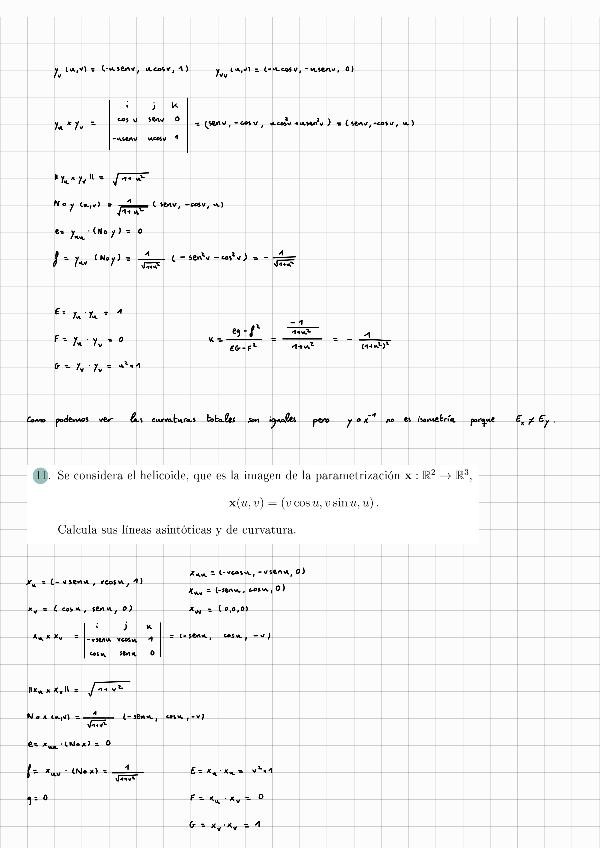 y_v (u,v) = (-u senv, u cosv, 1)   y_vv (u,v) = (-u cosv, -u senv, 0)
y_u × y_v = | i j k ; cos v senv 0 ; -u senv u cosv 1 | = (senv, -cosv, u cos²v + u sen²v) = (senv, -cosv, u)
‖y_u × y_v‖ = √(1+u²)
N∘y (u,v) = 1/√(1+u²) (senv, -cosv, u)
e = y_uu · (N∘y) = 0
f = y_uv (N∘y) = 1/√(1+u²) (-sen²v - cos²v) = - 1/√(1+u²)
E = y_u · y_u = 1
F = y_u · y_v = 0   K = (eg - f²)/(EG - F²) = (-1/(1+u²))/(1+u²) = - 1/(1+u²)²
G = y_v · y_v = u²+1
Como podemos ver las curvaturas totales son iguales pero y∘x⁻¹ no es isometría porque E_x ≠ E_y.
11. Se considera el helicoide, que es la imagen de la parametrización x : ℝ² → ℝ³,
x(u, v) = (v cos u, v sin u, u).
Calcula sus líneas asintóticas y de curvatura.
x_u = (-v senu, v cosu, 1)   x_uu = (-v cosu, -v senu, 0)
x_uv = (-senu, cosu, 0)
x_v = (cosu, senu, 0)   x_vv = (0,0,0)
x_u × x_v = | i j k ; -v senu v cosu 1 ; cosu senu 0 | = (-senu, cosu, -v)
‖x_u × x_v‖ = √(1+v²)
N∘x (u,v) = 1/√(1+v²) (-senu, cosu, -v)
e = x_uu · (N∘x) = 0
f = x_uv · (N∘x) = 1/√(1+v²)   E = x_u · x_u = v²+1
g = 0   F = x_u · x_v = 0
G = x_v · x_v = 1